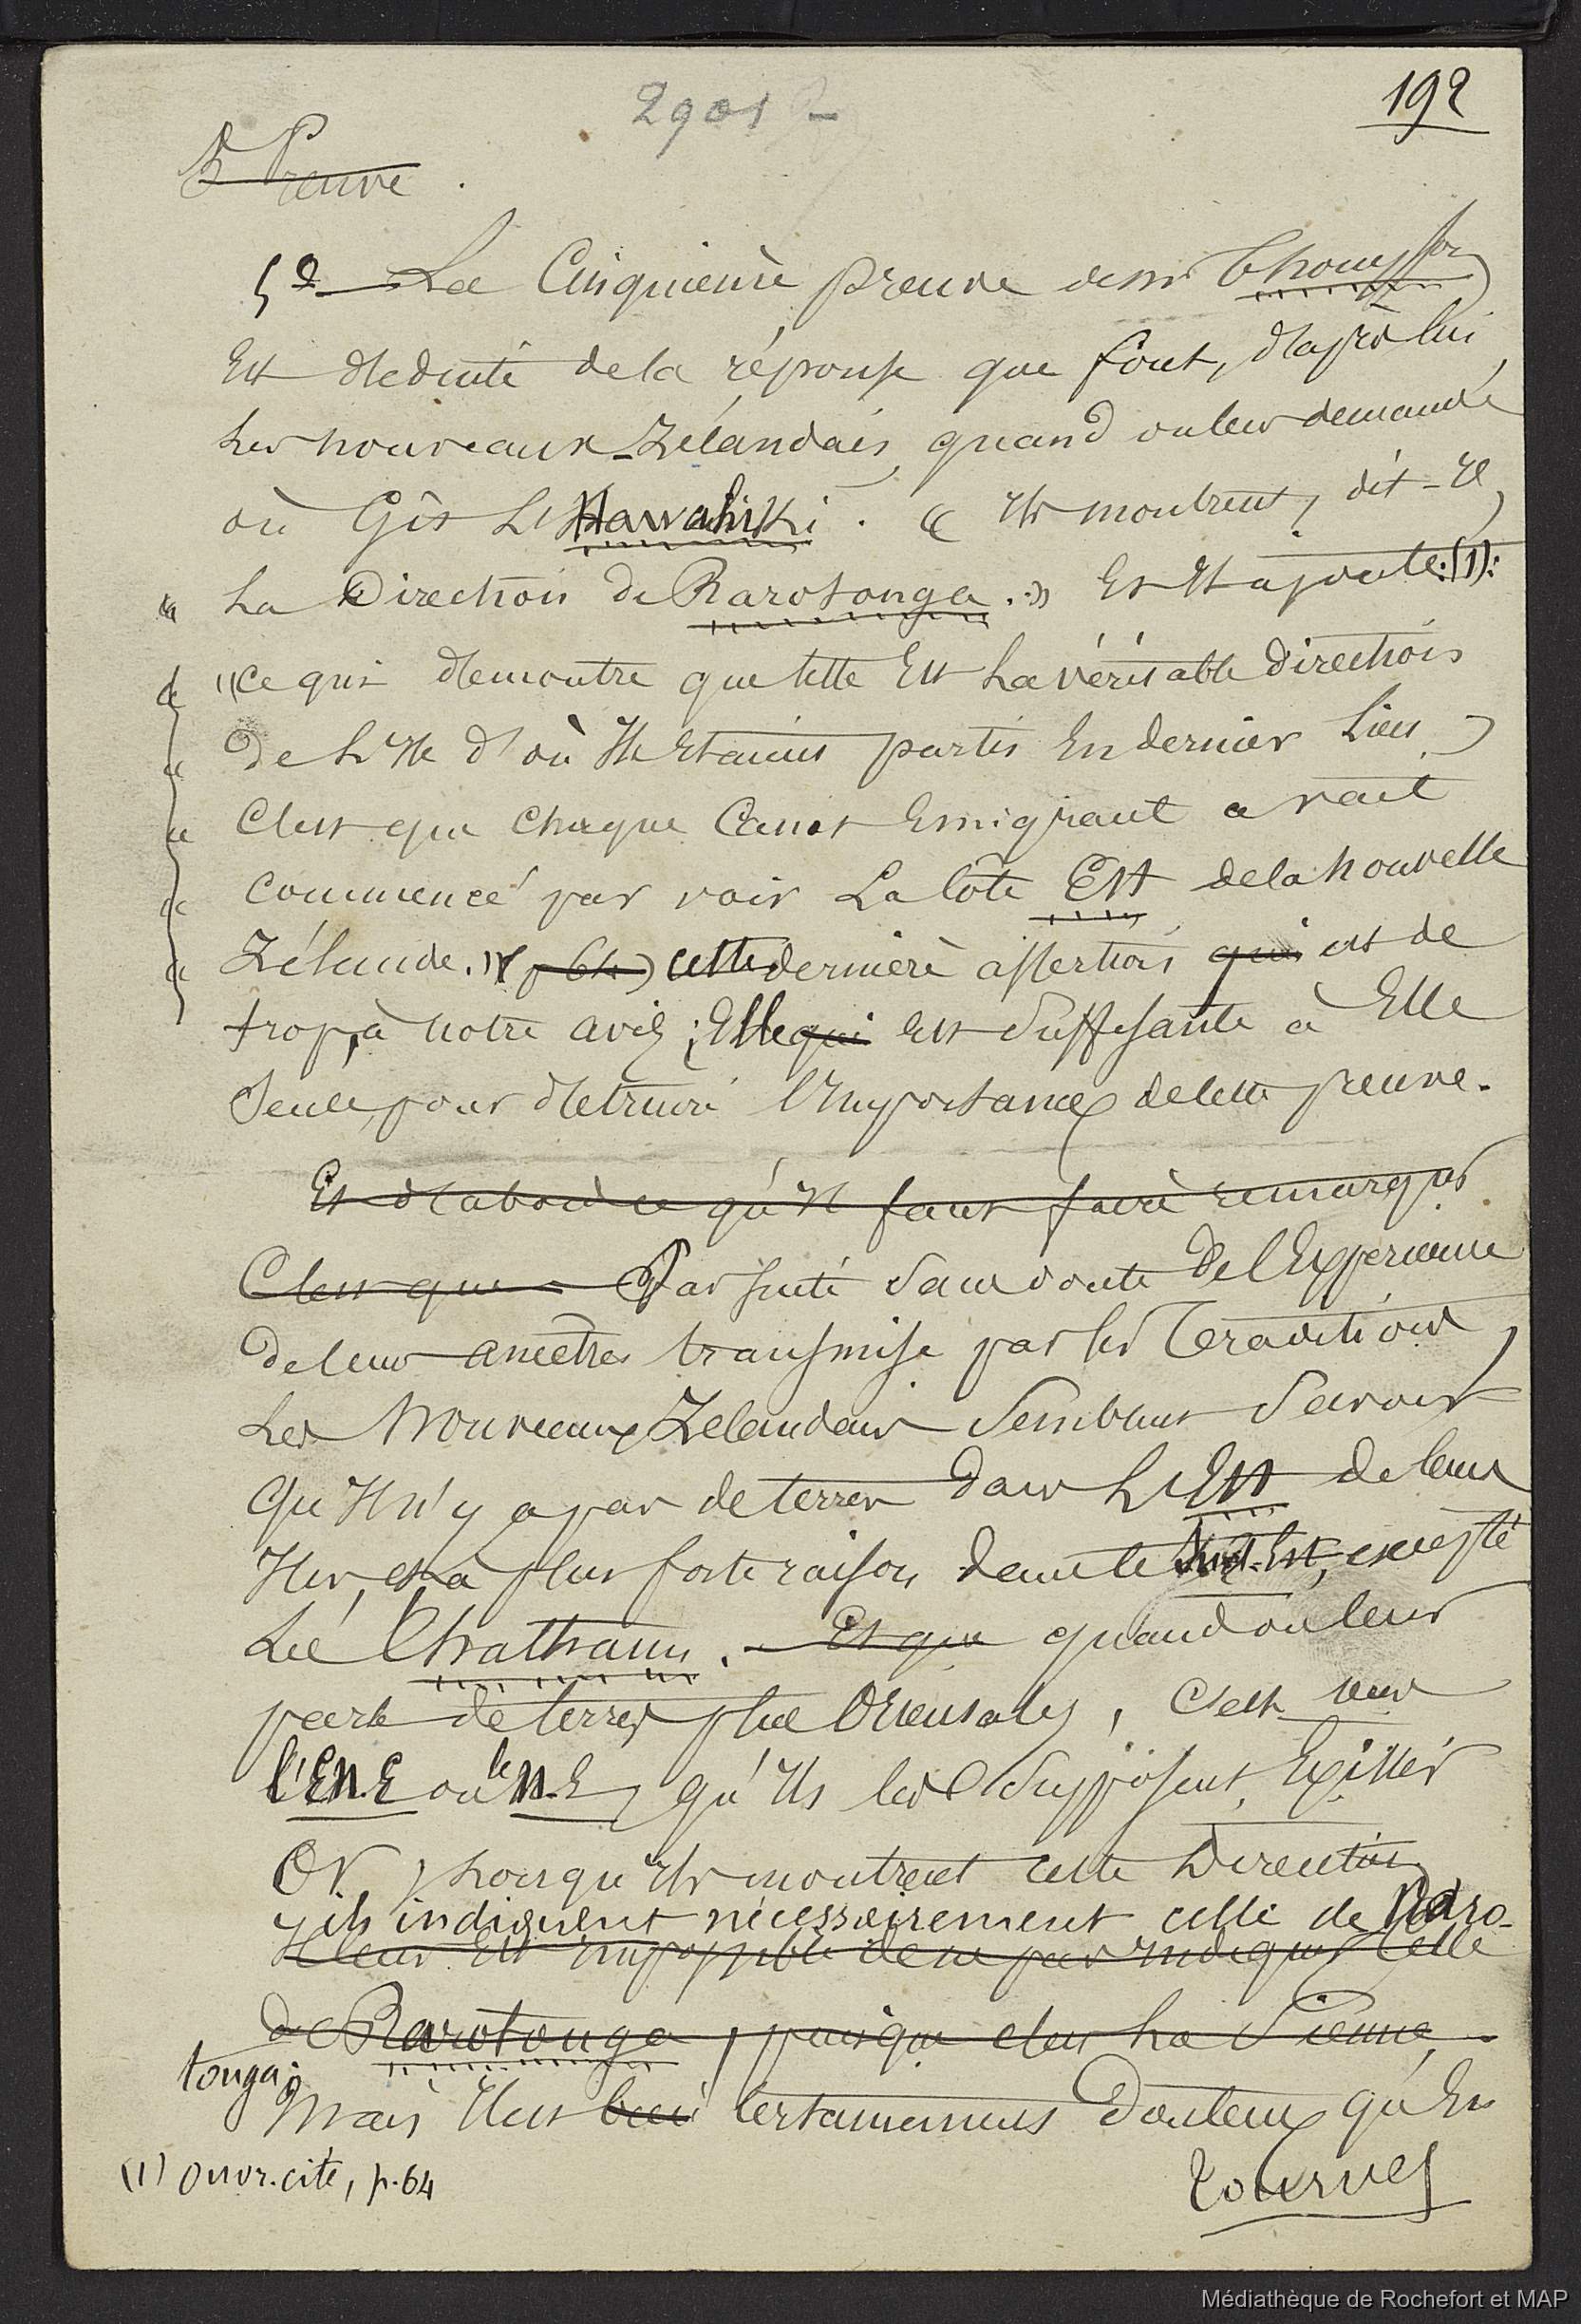 2901
192
5e Preuve.
5o La Cinquième preuve de Mr Thompson
Est déduite de la réponse que font, d'après lui,
Les nouveaux-Zélandais, quand on leur demande
où Gît L'Hawahiki. « Ils montrent, dit-il,
« La Direction de Rarotonga. » Et Il ajoute:(1):
« "ce qui démontre que telle Est La véritable direction
« de L'Ile d'où Ils Etaient partis En dernier Lieu,
« C'est que chaque Canot Emigrant avait
« commencé par voir La Côte Est de la nouvelle
« Zélande. » (p 64) cette dernière assertion qui est de
trop, à notre avis; Elle qui Est Suffisante à Elle
Seule, pour détruire l'Importance de cette preuve.
Et d'abord ce qu'Il faut faire remarquer
C'est que Par suite sans doute de l'Expérience
de leurs ancêtres transmise par les Traditions,
Les Nouveaux Zélandais Semblent Savoir
Qu'Il n'y a pas de terres dans L'Est de leurs
Iles, et à plus forte raison dans le Sud-Est, excepté
Les Chatham. Et que quand on leur
parle de terres plus Orientales, c'est vers
l'E.N.E ou le N.E, qu'Ils les Supposent Exister
Or, Lorsqu'Ils montrent cette Direction
ils indiquent nécessairement celle de Raro-
Il leur Est Impossible de ne pas Indiquer Celle
de Rarotonga, puisque c'est La Sienne.
tonga;
Mais Il est bien certainement douteux qu'En
(1) Ouvr. cité, p. 64